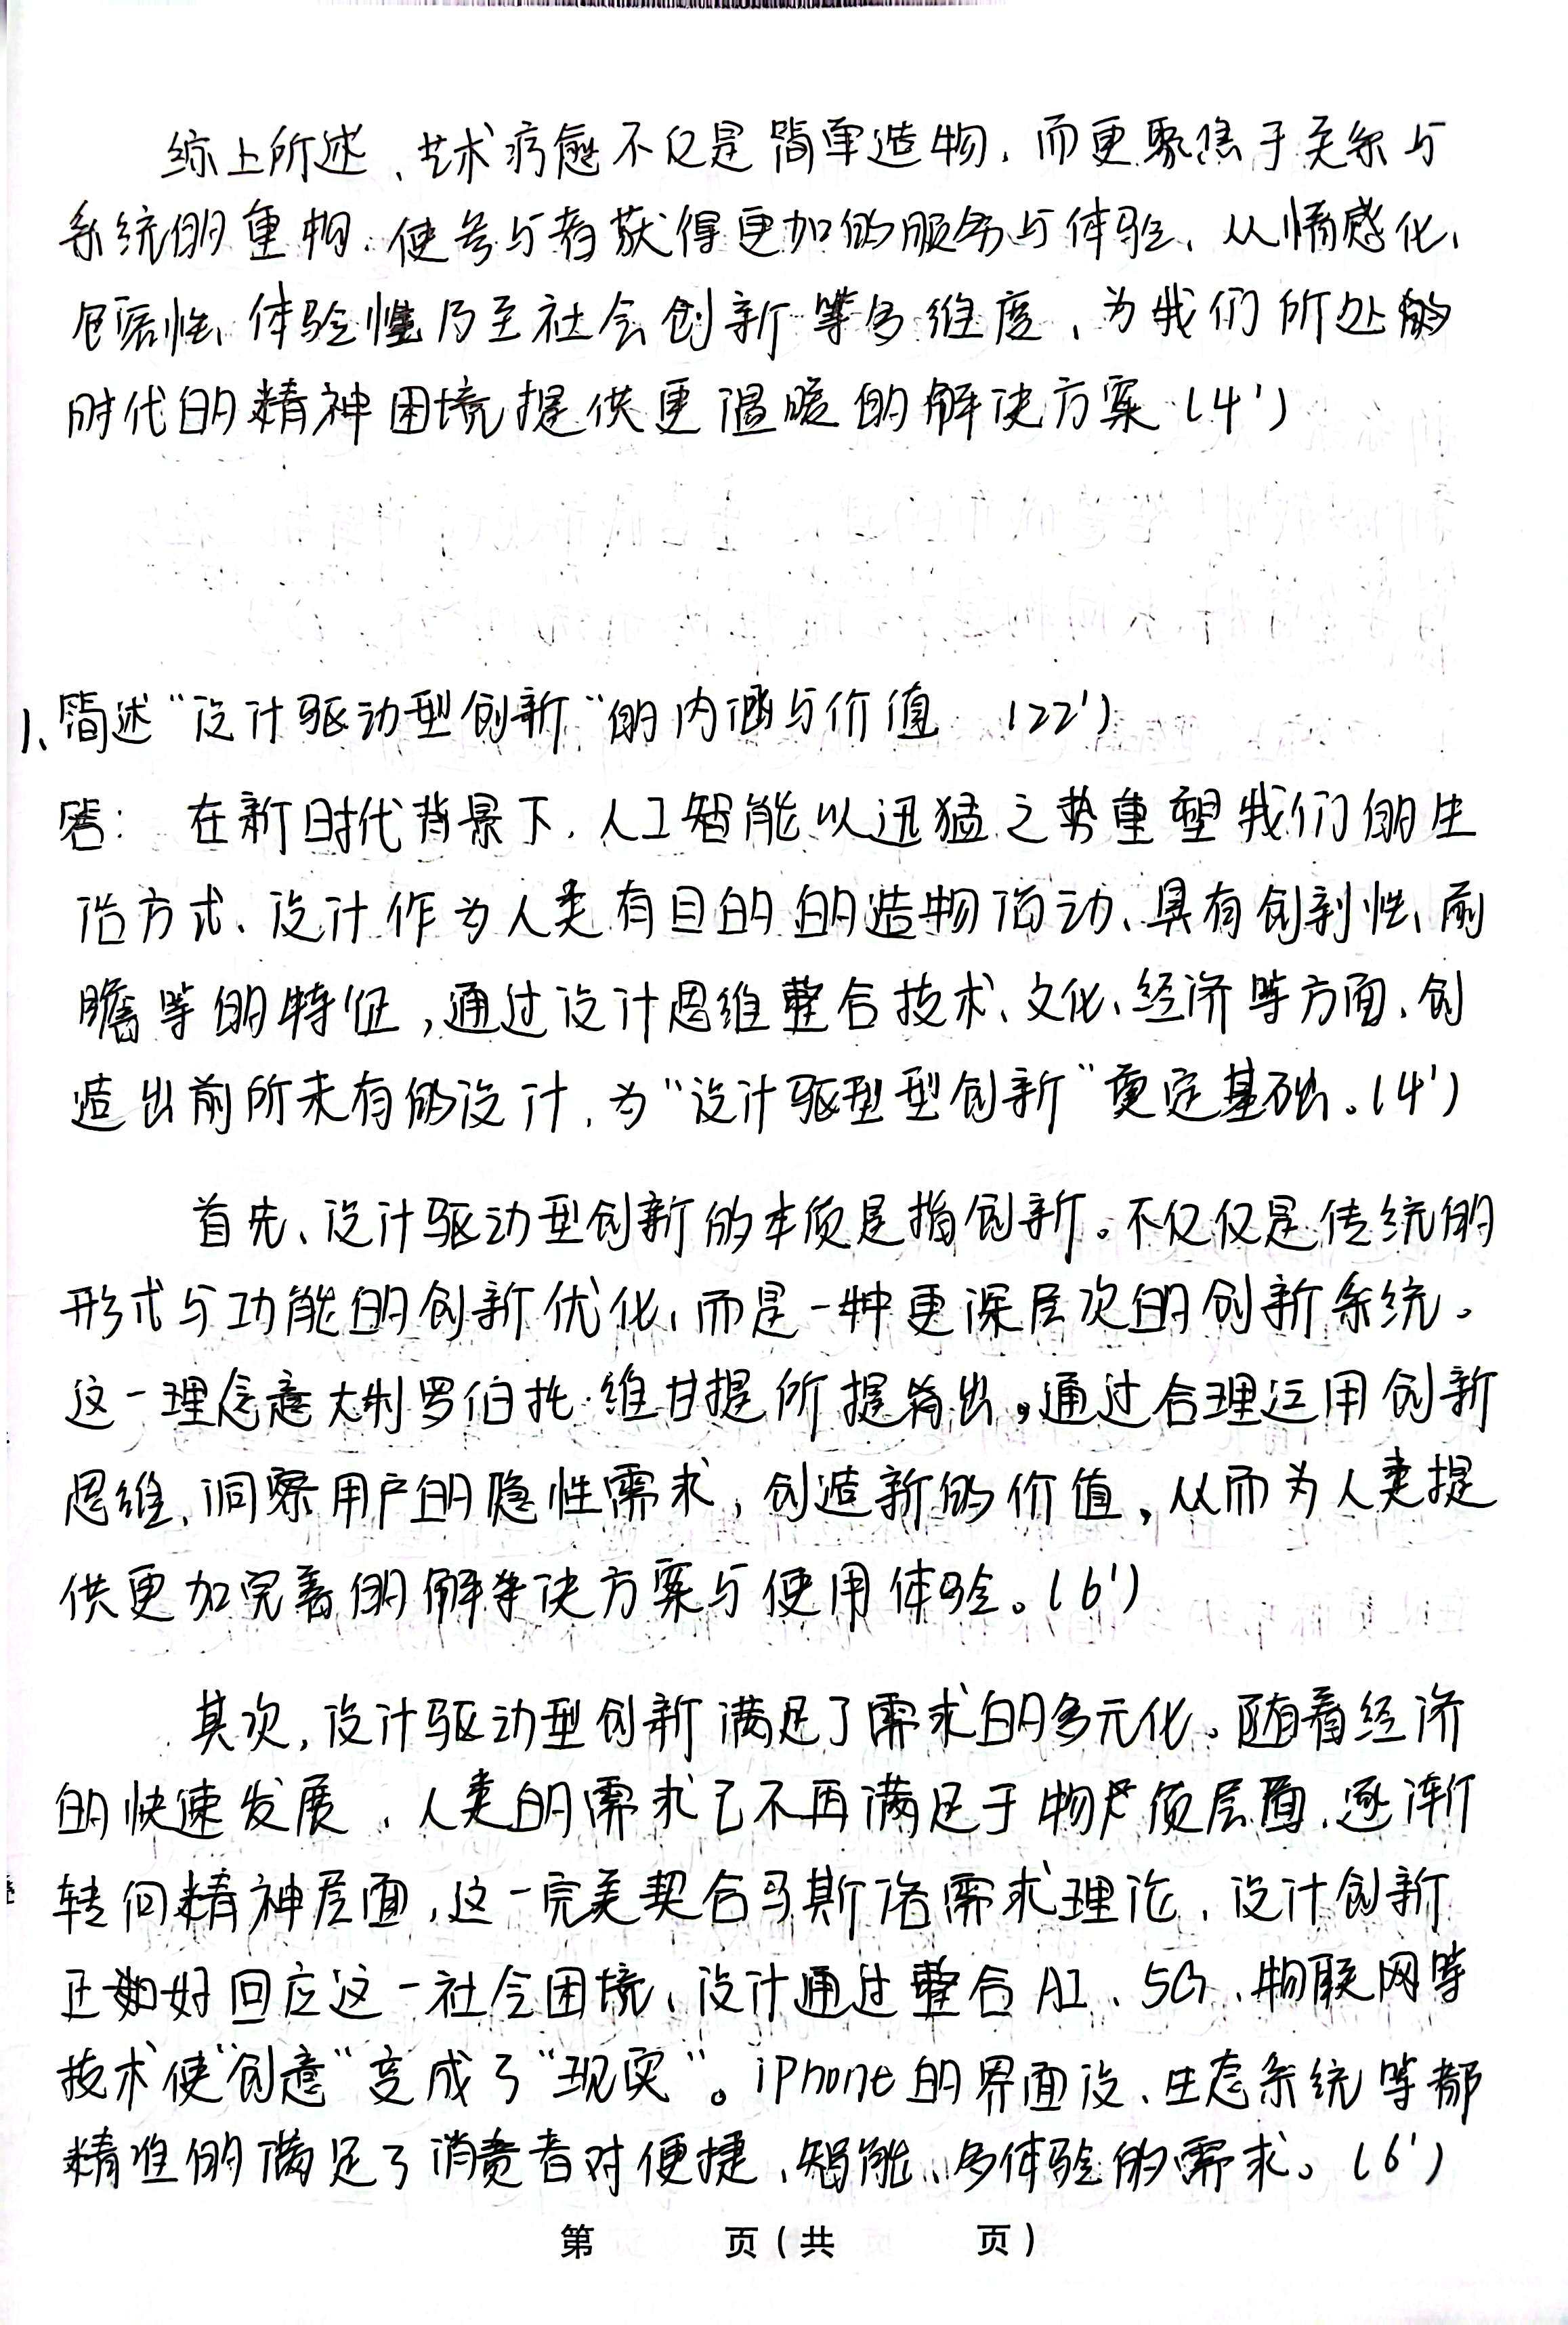 综上所述、艺术疗愈不仅是简单造物，而更聚焦于关系与
系统的重构，使参与者获得更加的服务与体验、从情感化、
包容性、体验性乃至社会创新等多维度、为我们所处的
时代的精神困境提供更温暖的解决方案（4'）
1、简述“设计驱动型创新”的内涵与价值 （22'）
答： 在新时代背景下，人工智能以迅猛之势重塑我们的生
活方式、设计作为人类有目的的造物活动、具有创新性、前
瞻等的特征，通过设计思维整合技术、文化、经济等方面，创
造出前所未有的设计，为“设计驱型型创新”奠定基础。（4'）
首先、设计驱动型创新的本质是指创新。不仅仅是传统的
形式与功能的创新优化，而是一种更深层次的创新系统。
这一理念意大利罗伯托·维甘提所提出，通过合理运用创新
思维、洞察用户的隐性需求，创造新的价值，从而为人类提
供更加完善的解决方案与使用体验。（6'）
其次，设计驱动型创新满足了需求的多元化。随着经济
的快速发展，人类的需求已不再满足于物质层面，逐渐
转向精神层面，这一完美契合马斯洛需求理论，设计创新
正好回应这一社会困境、设计通过整合AI、5G、物联网等
技术使“创意”变成了“现实”。iPhone的界面设、生态系统等都
精准的满足了消费者对便捷、智能、多体验的需求。（6'）
第 页（共 页）